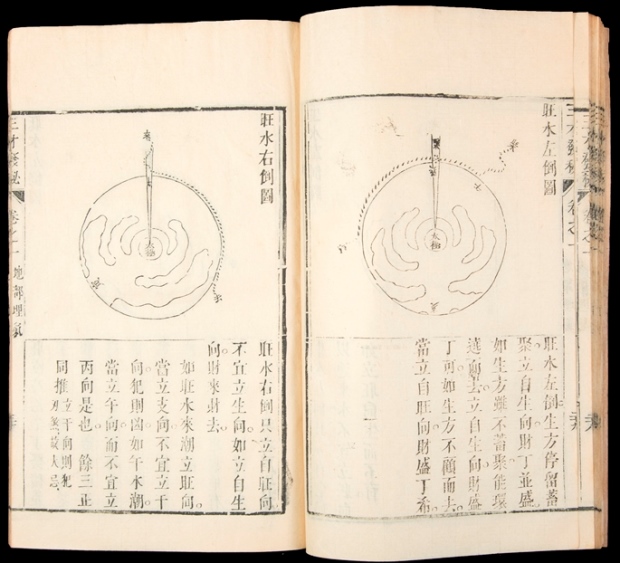 三才發秘
卷之一
旺水左倒圖
太極
旺水左倒生方停留蓄
聚立自生向財丁並盛
如生方雖不蓄聚能環
遶向去立自生向財盛
丁可如生方不顧而去
當立自旺向財盛丁希
旺水右倒圖
來
太極
旺水右倒只立自旺向
不宜立生向如立自生
向財來財去
如旺水來潮立旺向
當立支向不宜立干
向犯則凶如午水潮
當立午向而不宜立
丙向是也 餘三正
同推 立干向則犯
三才發秘
卷之一
地部理氣